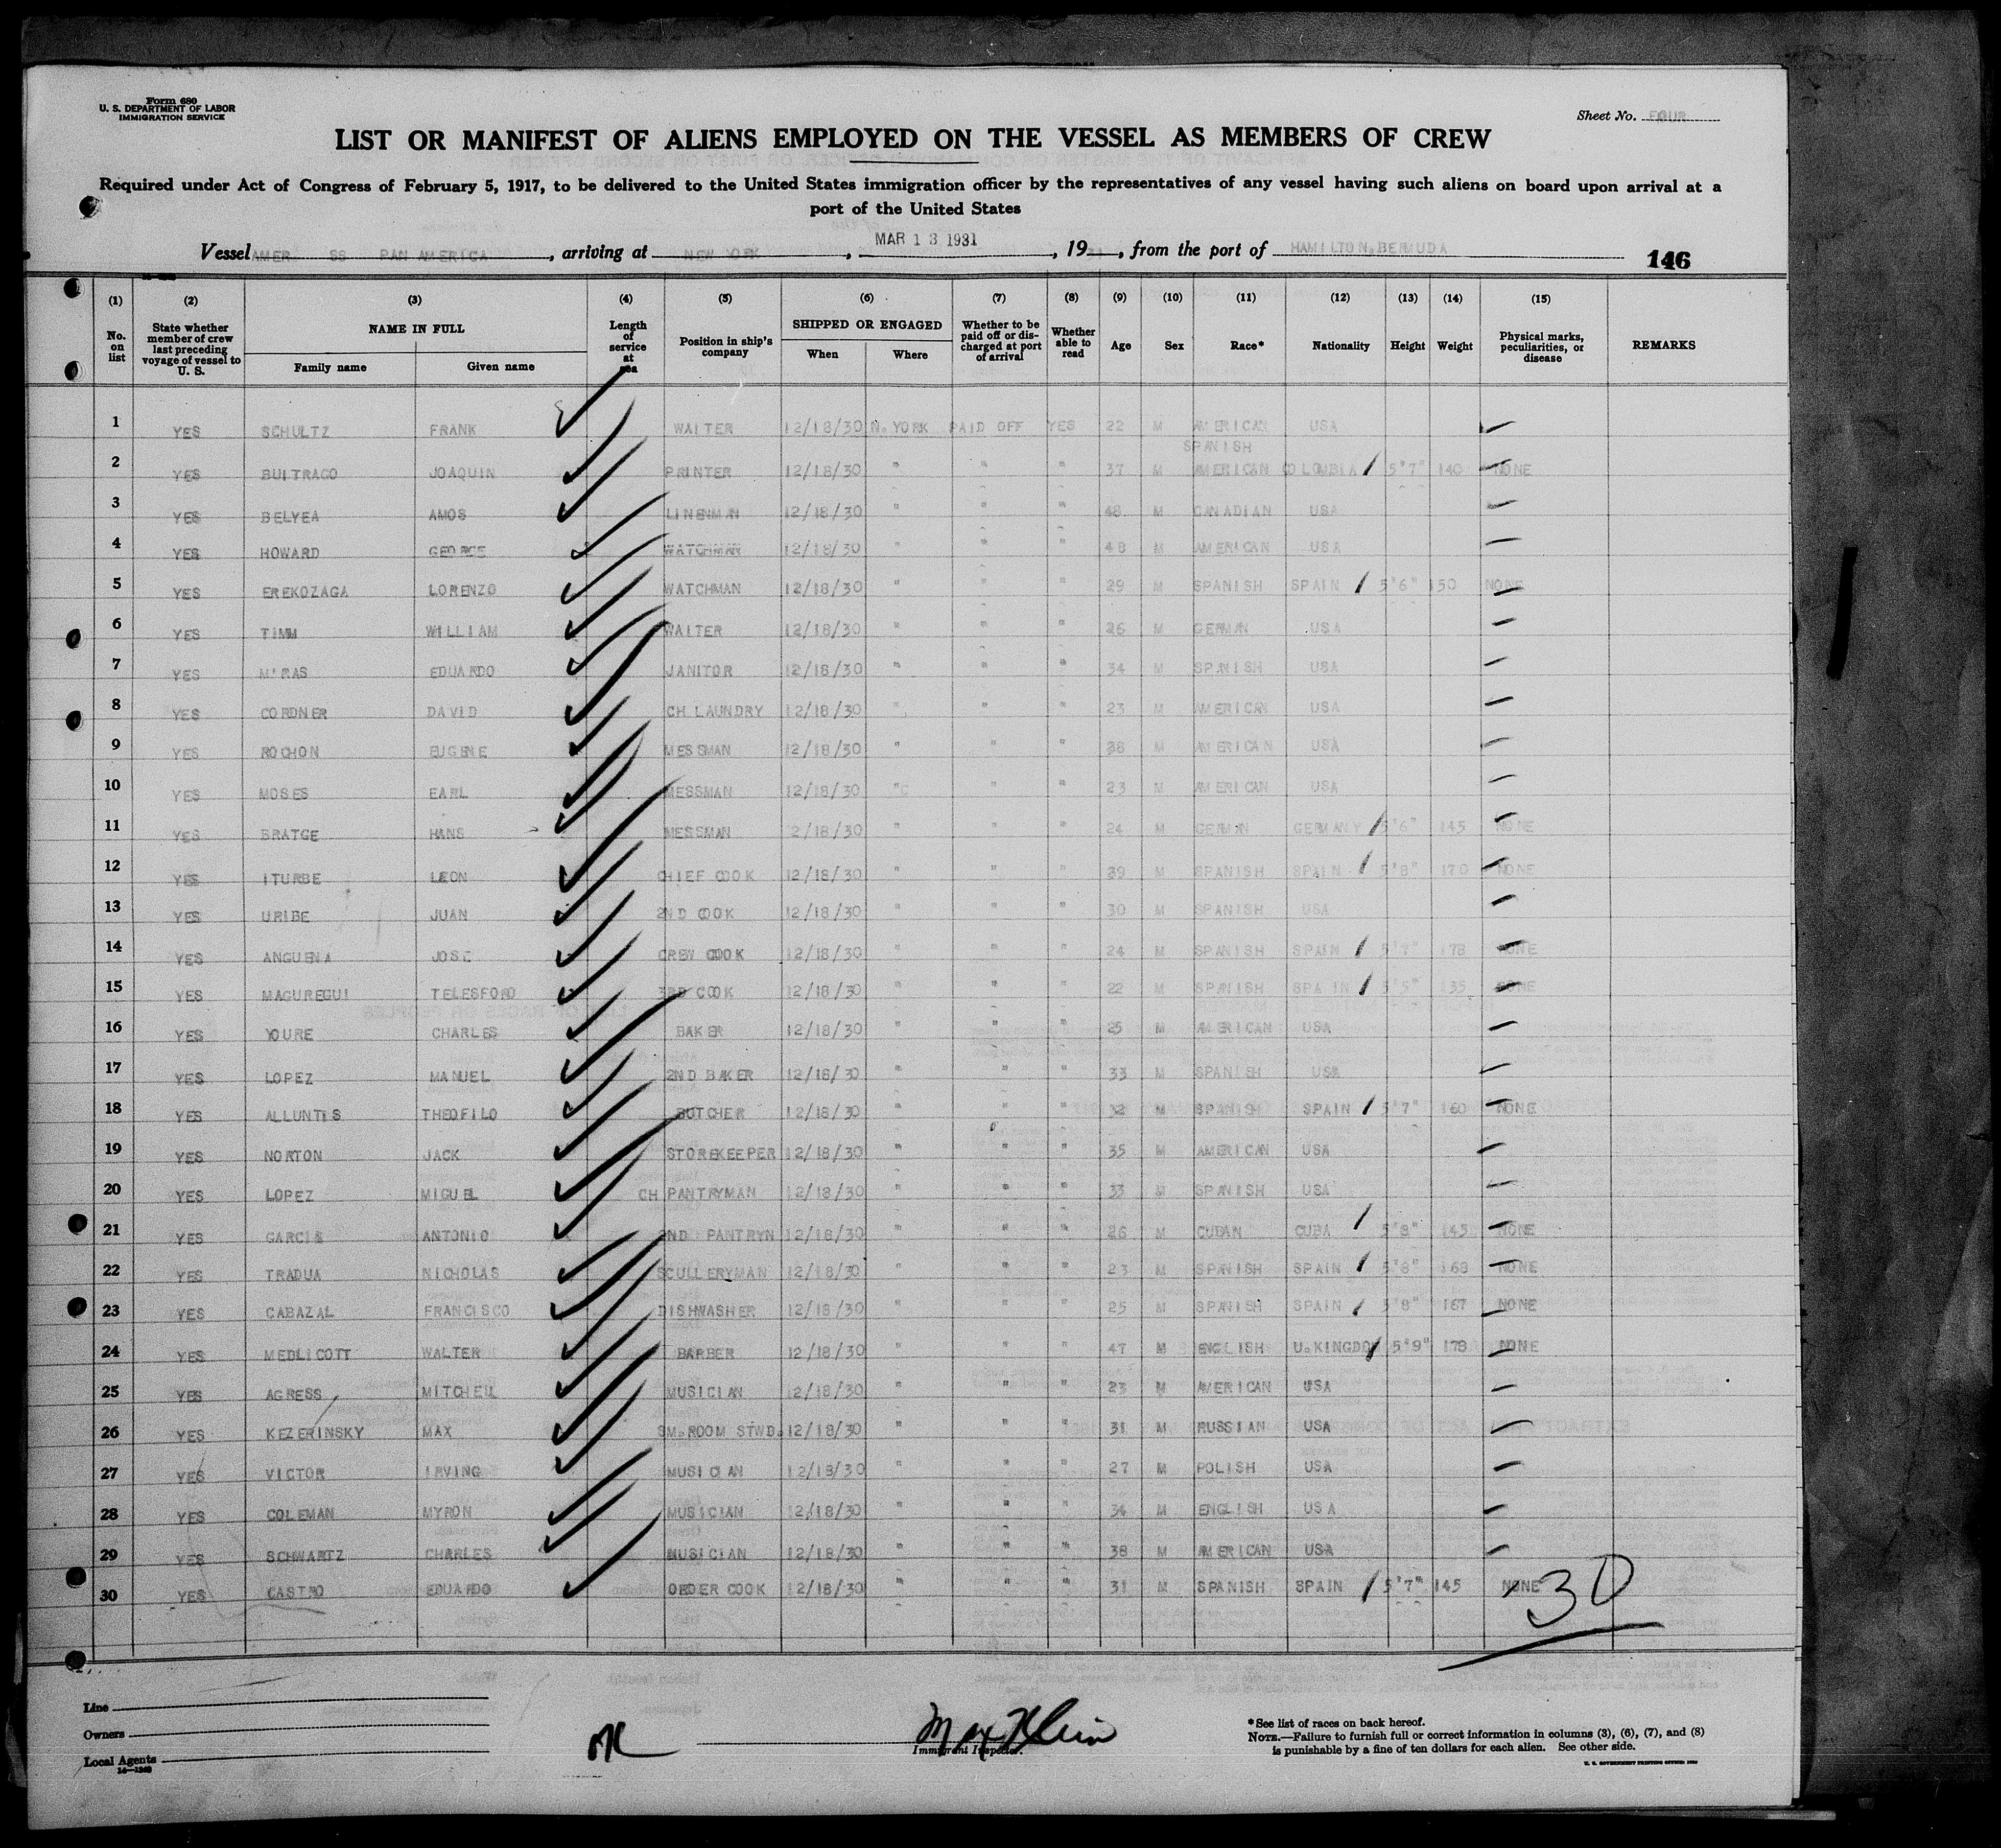 Form 680
U. S. DEPARTMENT OF LABOR
IMMIGRATION SERVICE
Sheet No. FOUR
LIST OR MANIFEST OF ALIENS EMPLOYED ON THE VESSEL AS MEMBERS OF CREW
Required under Act of Congress of February 5, 1917, to be delivered to the United States immigration officer by the representatives of any vessel having such aliens on board upon arrival at a
port of the United States
Vessel AMER. SS PAN AMERICA, arriving at NEW YORK, MAR 13 1931, 19 , from the port of HAMILTON, BERMUDA 146
(1) (2) (3) (4) (5) (6) (7) (8) (9) (10) (11) (12) (13) (14) (15)
No. on list State whether member of crew last preceding voyage of vessel to U. S. NAME IN FULL Family name Given name Length of service at sea Position in ship's company SHIPPED OR ENGAGED When Where Whether to be paid off or discharged at port of arrival Whether able to read Age Sex Race* Nationality Height Weight Physical marks, peculiarities, or disease REMARKS
1 YES SCHULTZ FRANK WAITER 12/18/30 N. YORK PAID OFF YES 22 M AMERICAN USA
SPANISH
2 YES BUITRAGO JOAQUIN PRINTER 12/18/30 " " " 37 M AMERICAN COLOMBIA 5'7" 140 NONE
3 YES BELYEA AMOS LINENMAN 12/18/30 " " " 48 M CANADIAN USA
4 YES HOWARD GEORGE WATCHMAN 12/18/30 " " " 48 M AMERICAN USA
5 YES EREKOZAGA LORENZO WATCHMAN 12/18/30 " " " 29 M SPANISH SPAIN 5'6" 150 NONE
6 YES TIMM WILLIAM WAITER 12/18/30 " " " 26 M GERMAN USA
7 YES M'RAS EDUARDO JANITOR 12/18/30 " " " 34 M SPANISH USA
8 YES CORDNER DAVID CH LAUNDRY 12/18/30 " " " 23 M AMERICAN USA
9 YES ROCHON EUGENE MESSMAN 12/18/30 " " " 38 M AMERICAN USA
10 YES MOSES EARL MESSMAN 12/18/30 " " " 23 M AMERICAN USA
11 YES BRATGE HANS MESSMAN 2/18/30 " " " 24 M GERMAN GERMANY 5'6" 145 NONE
12 YES ITURBE LEON CHIEF COOK 12/18/30 " " " 39 M SPANISH SPAIN 5'8" 170 NONE
13 YES URIBE JUAN 2ND COOK 12/18/30 " " " 30 M SPANISH USA
14 YES ANGUENA JOSE CREW COOK 12/18/30 " " " 24 M SPANISH SPAIN 5'7" 178 NONE
15 YES MAGUREGUI TELESFORO 3RD COOK 12/18/30 " " " 22 M SPANISH SPAIN 5'5" 135 NONE
16 YES YOURE CHARLES BAKER 12/18/30 " " " 25 M AMERICAN USA
17 YES LOPEZ MANUEL 2ND BAKER 12/18/30 " " " 33 M SPANISH USA
18 YES ALLUNTIS THEOFILO BUTCHER 12/18/30 " " " 32 M SPANISH SPAIN 5'7" 160 NONE
19 YES NORTON JACK STOREKEEPER 12/18/30 " " " 35 M AMERICAN USA
20 YES LOPEZ MIGUEL CH PANTRYMAN 12/18/30 " " " 33 M SPANISH USA
21 YES GARCIA ANTONIO 2ND PANTRYN 12/18/30 " " " 26 M CUBAN CUBA 5'8" 145 NONE
22 YES TRADUA NICHOLAS SCULLERYMAN 12/18/30 " " " 23 M SPANISH SPAIN 5'8" 168 NONE
23 YES CABAZAL FRANCISCO DISHWASHER 12/18/30 " " " 25 M SPANISH SPAIN 5'8" 167 NONE
24 YES MEDLICOTT WALTER BARBER 12/18/30 " " " 47 M ENGLISH U.KINGDOM 5'9" 178 NONE
25 YES AGRESS MITCHELL MUSICIAN 12/18/30 " " " 23 M AMERICAN USA
26 YES KEZERINSKY MAX SM.ROOM STWD. 12/18/30 " " " 31 M RUSSIAN USA
27 YES VICTOR IRVING MUSICIAN 12/18/30 " " " 27 M POLISH USA
28 YES COLEMAN MYRON MUSICIAN 12/18/30 " " " 34 M ENGLISH USA
29 YES SCHWARTZ CHARLES MUSICIAN 12/18/30 " " " 38 M AMERICAN USA
30 YES CASTRO EDUARDO ORDER COOK 12/18/30 " " " 31 M SPANISH SPAIN 5'7" 145 NONE
30
Line
Owners
Local Agents
14—1240
OK
Max Klein
Immigrant Inspector.
*See list of races on back hereof.
NOTE.—Failure to furnish full or correct information in columns (3), (6), (7), and (8)
is punishable by a fine of ten dollars for each alien. See other side.
U. S. GOVERNMENT PRINTING OFFICE: 1930